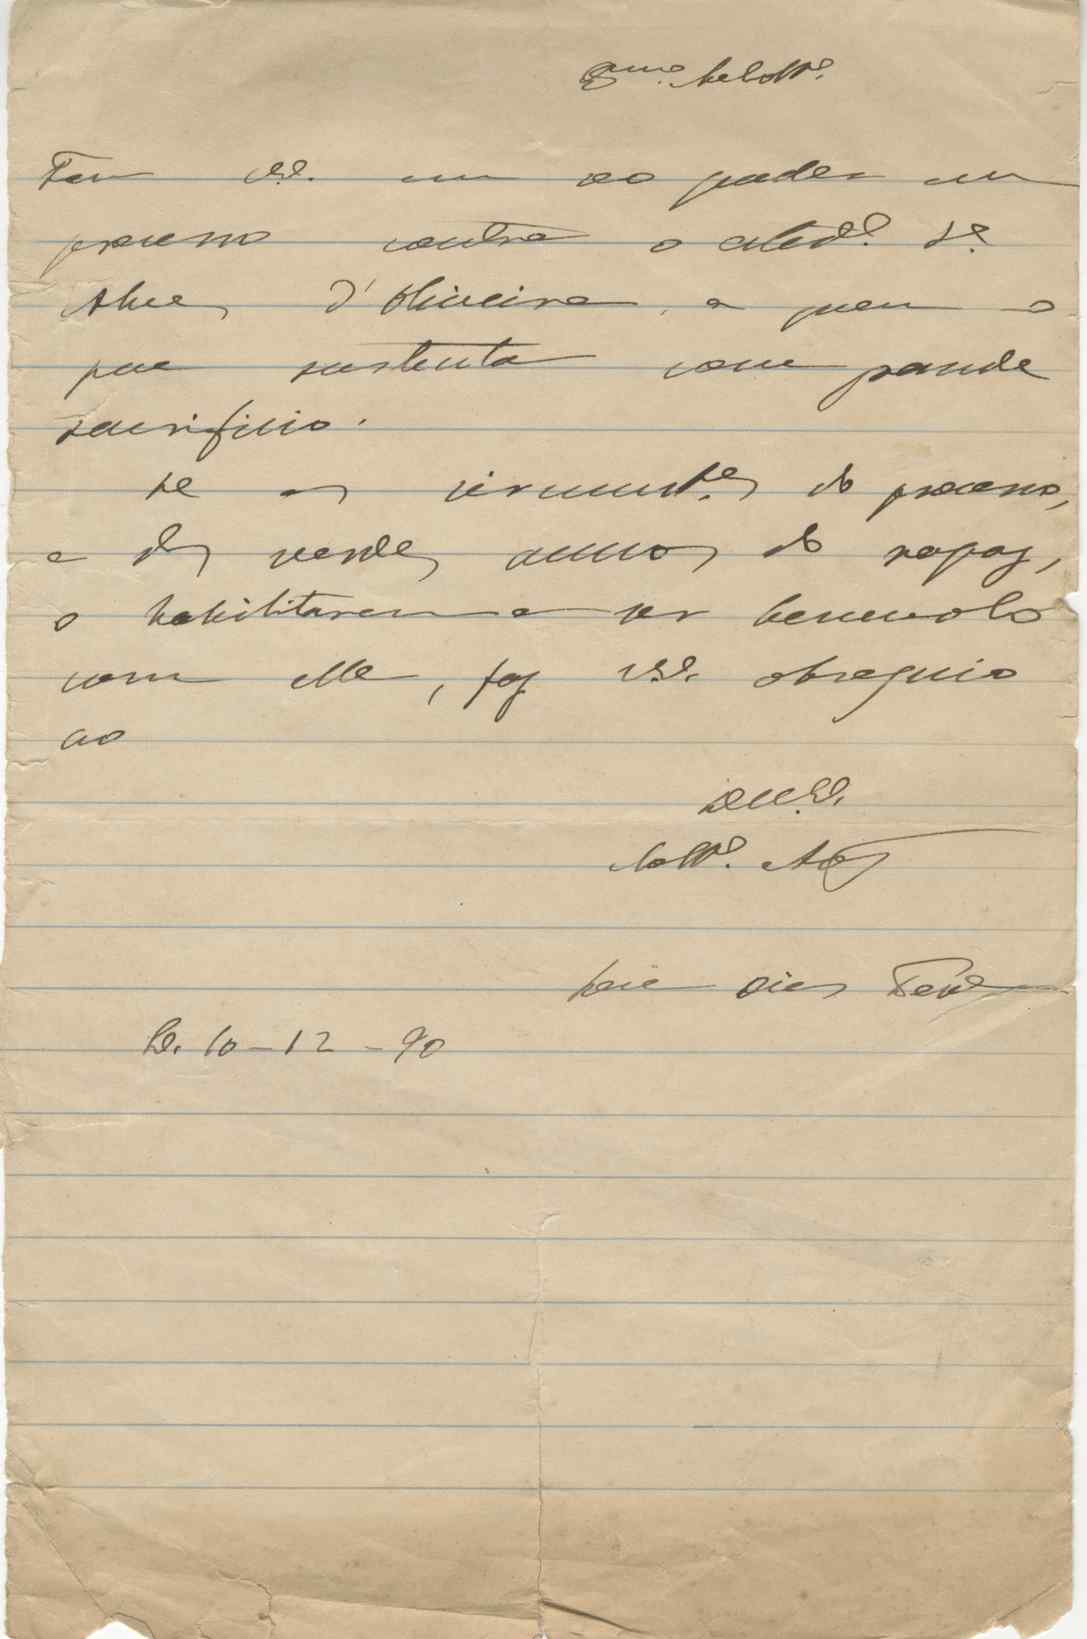 Exmo. Collª.
Tem V.E. em seo poder um
processo contra o alumº. Jº.
Alves d'Oliveira, a quem o
pae sustenta com grande
sacrificio.
Se as circumst.es do processo,
e os verdes annos do rapaz,
o habilitarem a ser benevolo
com elle, faz V.E. obsequio
ao
De V.E.
Collª. Amº
Dias
C. 10-12-90